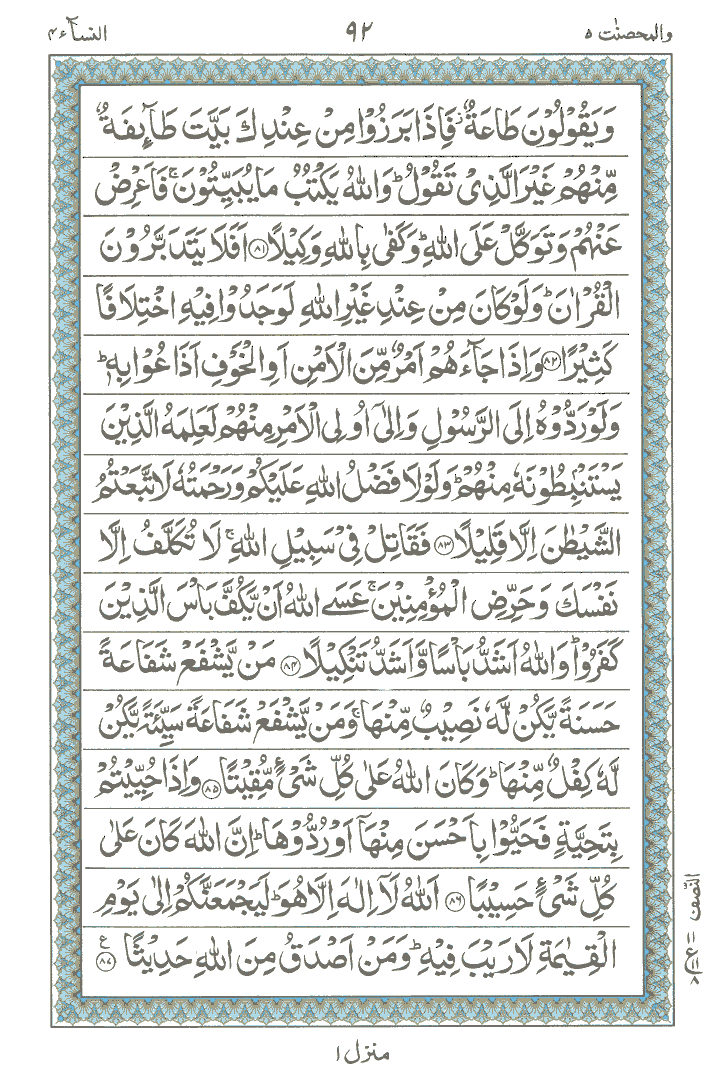 والمحصنٰت ٥ ٩٢ النسآء ٤
وَيَقُوْلُوْنَ طَاعَةٌ ز فَاِذَا بَرَزُوْا مِنْ عِنْدِكَ بَيَّتَ طَآىِٕفَةٌ
مِّنْهُمْ غَيْرَ الَّذِىْ تَقُوْلُ ؕ وَاللّٰهُ يَكْتُبُ مَا يُبَيِّتُوْنَ ۚ فَاَعْرِضْ
عَنْهُمْ وَتَوَكَّلْ عَلَى اللّٰهِ ؕ وَكَفٰى بِاللّٰهِ وَكِيْلًا ﴿٨١﴾ اَفَلَا يَتَدَبَّرُوْنَ
الْقُرْاٰنَ ؕ وَلَوْ كَانَ مِنْ عِنْدِ غَيْرِ اللّٰهِ لَوَجَدُوْا فِيْهِ اخْتِلَافًا
كَثِيْرًا ﴿٨٢﴾ وَاِذَا جَآءَهُمْ اَمْرٌ مِّنَ الْاَمْنِ اَوِ الْخَوْفِ اَذَاعُوْا بِهٖ ؕ
وَلَوْ رَدُّوْهُ اِلَى الرَّسُوْلِ وَاِلٰٓى اُولِى الْاَمْرِ مِنْهُمْ لَعَلِمَهُ الَّذِيْنَ
يَسْتَنْۢبِطُوْنَهٗ مِنْهُمْ ؕ وَلَوْلَا فَضْلُ اللّٰهِ عَلَيْكُمْ وَرَحْمَتُهٗ لَاتَّبَعْتُمُ
الشَّيْطٰنَ اِلَّا قَلِيْلًا ﴿٨٣﴾ فَقَاتِلْ فِىْ سَبِيْلِ اللّٰهِ ۚ لَا تُكَلَّفُ اِلَّا
نَفْسَكَ وَحَرِّضِ الْمُؤْمِنِيْنَ ۚ عَسَى اللّٰهُ اَنْ يَّكُفَّ بَاْسَ الَّذِيْنَ
كَفَرُوْا ؕ وَاللّٰهُ اَشَدُّ بَاْسًا وَّاَشَدُّ تَنْكِيْلًا ﴿٨٤﴾ مَنْ يَّشْفَعْ شَفَاعَةً
حَسَنَةً يَّكُنْ لَّهٗ نَصِيْبٌ مِّنْهَا ۚ وَمَنْ يَّشْفَعْ شَفَاعَةً سَيِّئَةً يَّكُنْ
لَّهٗ كِفْلٌ مِّنْهَا ؕ وَكَانَ اللّٰهُ عَلٰى كُلِّ شَىْءٍ مُّقِيْتًا ﴿٨٥﴾ وَاِذَا حُيِّيْتُمْ
بِتَحِيَّةٍ فَحَيُّوْا بِاَحْسَنَ مِنْهَآ اَوْ رُدُّوْهَا ؕ اِنَّ اللّٰهَ كَانَ عَلٰى
كُلِّ شَىْءٍ حَسِيْبًا ﴿٨٦﴾ اَللّٰهُ لَآ اِلٰهَ اِلَّا هُوَ ؕ لَيَجْمَعَنَّكُمْ اِلٰى يَوْمِ
الْقِيٰمَةِ لَا رَيْبَ فِيْهِ ؕ وَمَنْ اَصْدَقُ مِنَ اللّٰهِ حَدِيْثًا ﴿٨٧﴾ ع
النّصف
ع ١١ ٨
منزل ١